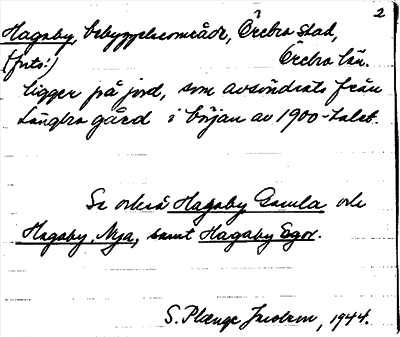 2
Hagaby, bebyggelseområde, Örebro stad,
(forts:) Örebro län.
ligger på jord, som avsöndrats från
Längbro gård i början av 1900-talet.
Se också Hagaby Gamla och
Hagaby, Nya, samt Hagaby Egor.
S. Plænge Jacobson, 1944.